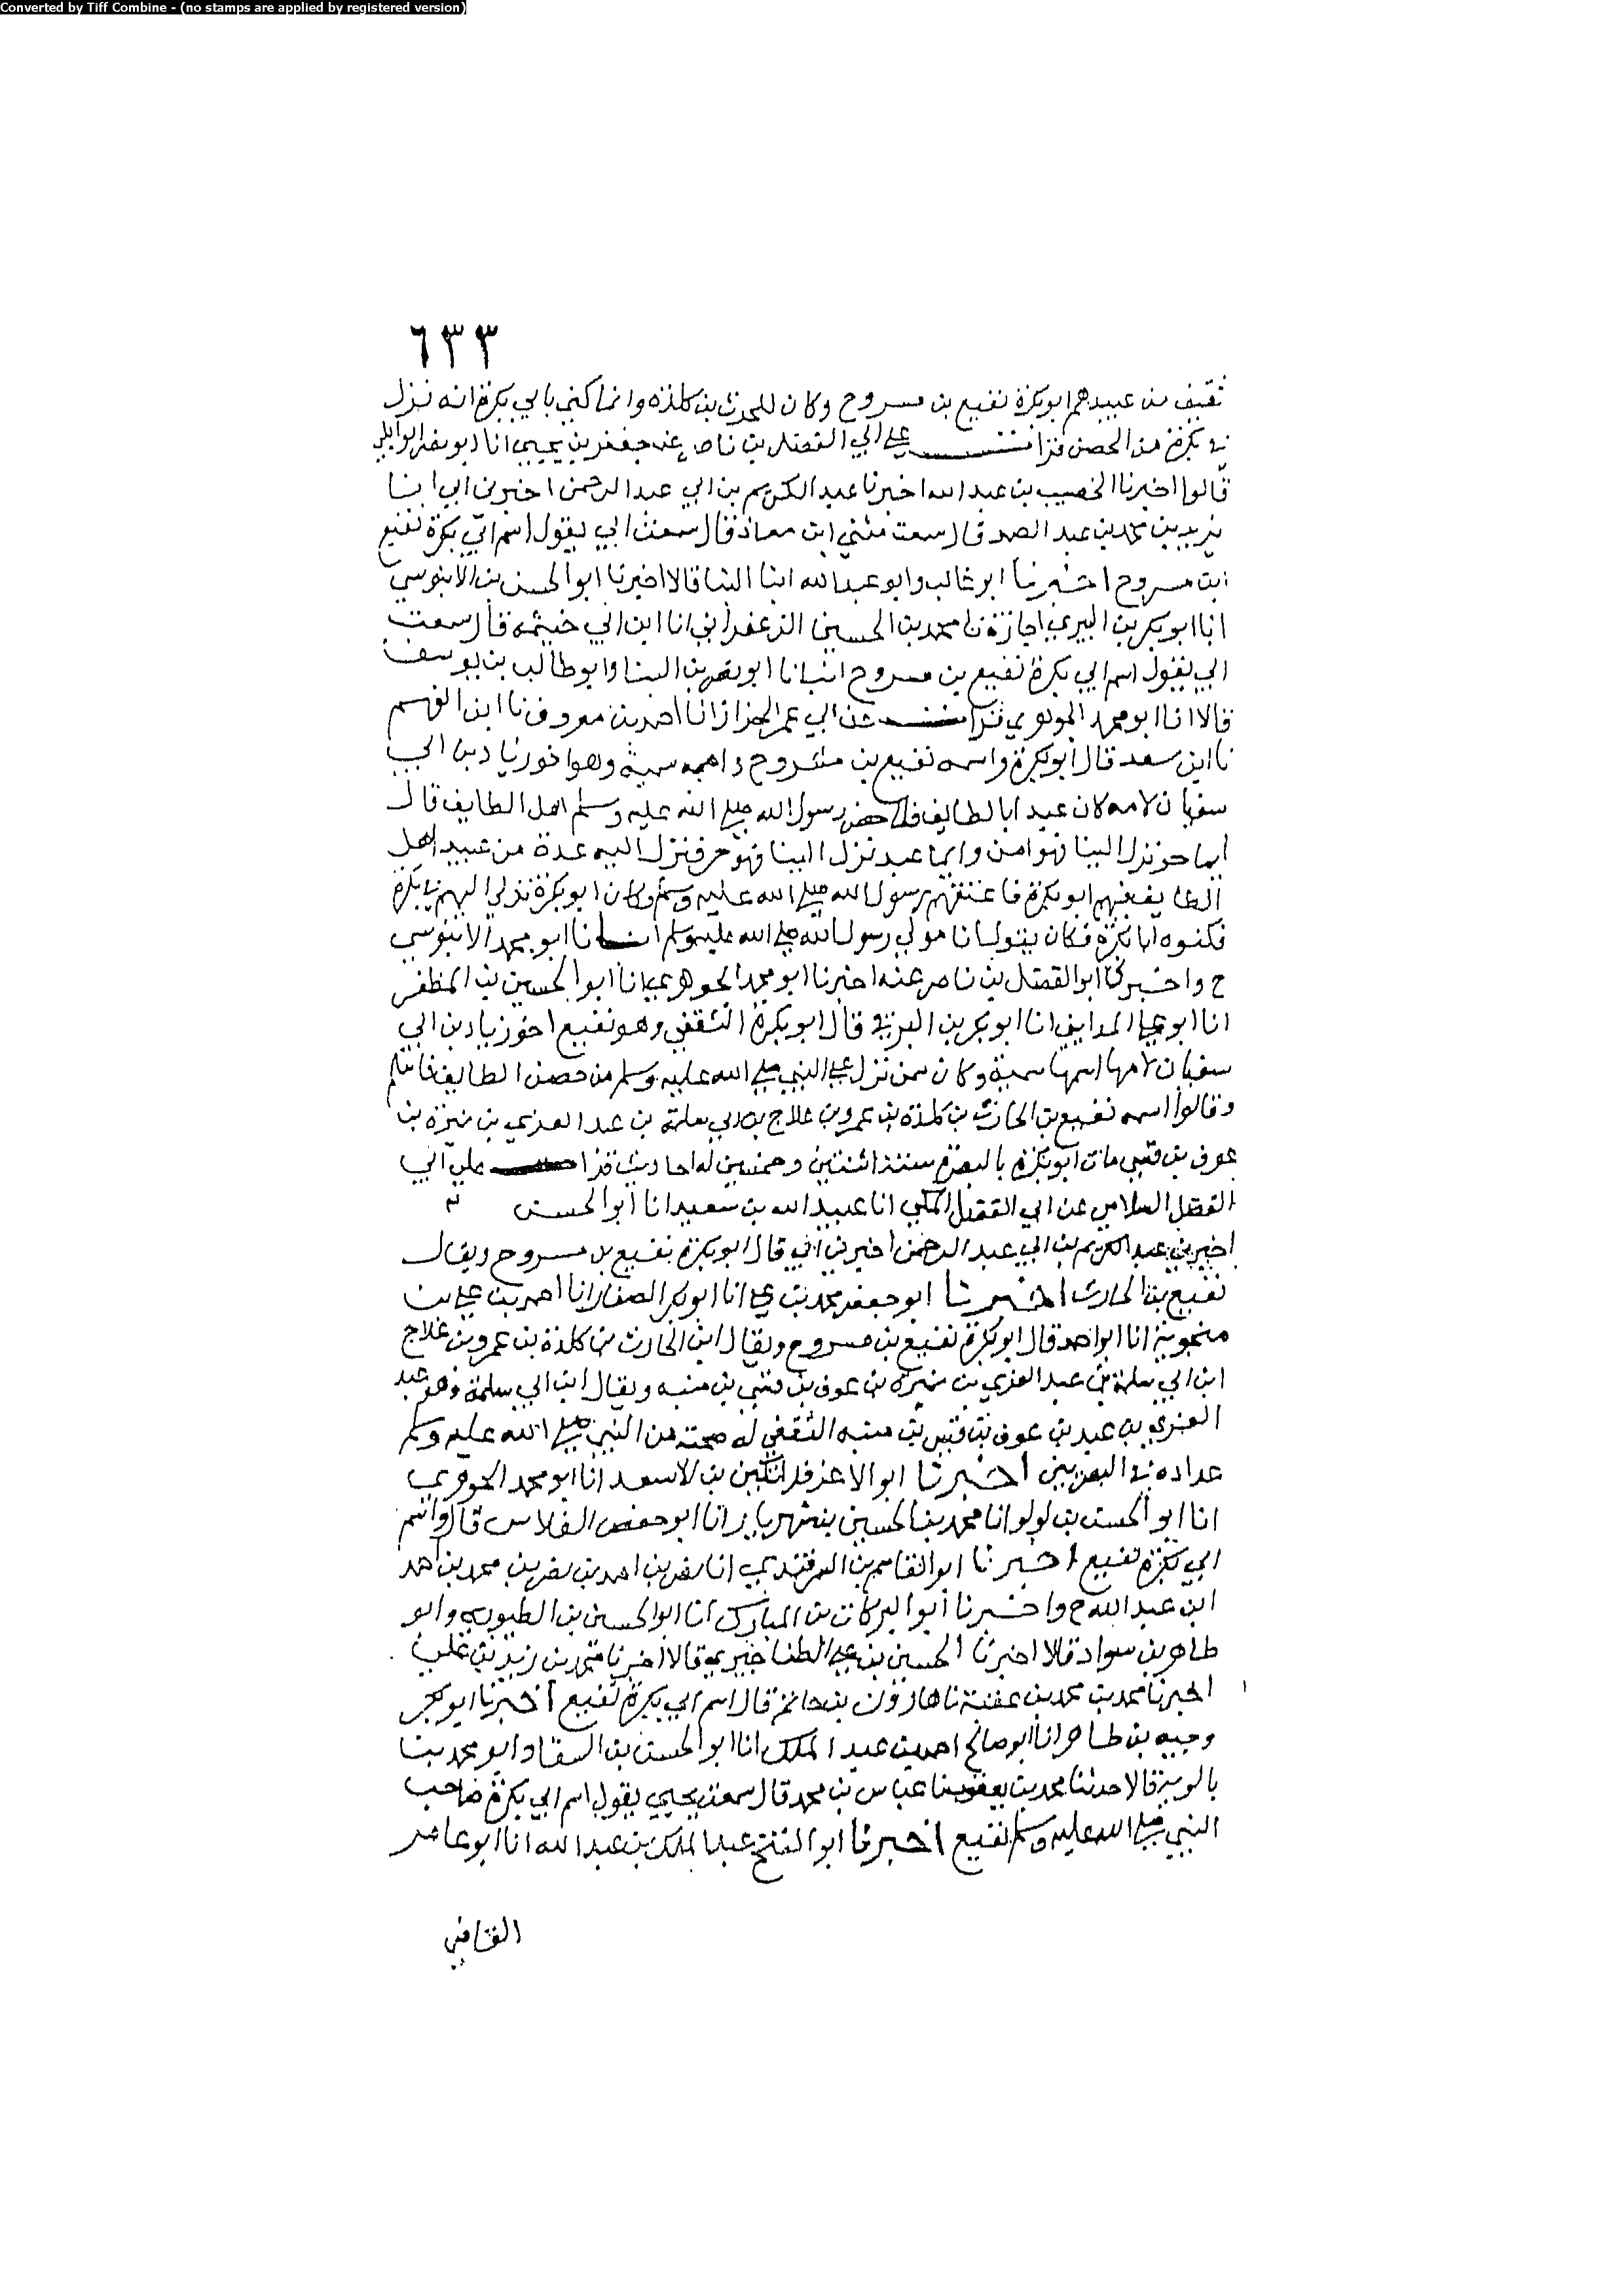 Converted by Tiff Combine - (no stamps are applied by registered version)
٦٣٣
ثقيف من عبيدهم ابو بكرة نفيع بن مسروح وكان للحرث بن كلدة وانما كني بابي بكرة انه نزل
في بكرة من الحصن قرات على ابي الفضل بن ناصر عن جعفر بن يحيى انا ابو نصر الوايلي
قالوا اخبرنا الخصيب بن عبد الله اخبرنا عبد الكريم بن ابي عبد الرحمن اخبرني ابي انبا
يزيد بن محمد بن عبد الصمد قال سمعت مثنى ابن معاذ قال سمعت ابي يقول اسم ابي بكرة نفيع
ابن مسروح اخبرنا ابو غالب وابو عبد الله ابنا البنا قالا اخبرنا ابو الحسن بن الابنوسي
انا ابو بكر بن البيري اجازة نا محمد بن الحسين الزعفراني انا ابن ابي خيثمة قال سمعت
ابي يقول اسم ابي بكرة نفيع بن مسروح انبانا ابو نصر بن البنا وابو طالب بن يوسف
قالا انا ابو محمد الجوهري قراة عن ابي عمر الخزاز انا احمد بن معروف نا ابن الفهم
نا ابن سعد قال ابو بكرة واسمه نفيع بن مسروح وامه سمية وهو اخو زياد بن ابي
سفيان لامه كان عبدا بالطايف فلما حصر رسول الله صلى الله عليه وسلم اهل الطايف قال
ايما حر نزل الينا فهو امن وايما عبد نزل الينا فهو حر فنزل اليه عدة من عبيد اهل
الطايف فيهم ابو بكرة فاعتقهم رسول الله صلى الله عليه وسلم وكان ابو بكرة تدلى اليهم في بكرة
فكنوه ابا بكرة فكان يقول انا مولى رسول الله صلى الله عليه وسلم انبانا ابو محمد الابنوسي
ح واخبرني ابو الفضل بن ناصر عنه اخبرنا ابو محمد الجوهري انا ابو الحسين بن المظفر
انا ابو علي المدايني انا ابو بكر بن البرقي قال ابو بكرة الثقفي وهو نفيع اخو زياد بن ابي
سفيان لامها اسمها سمية وكان ممن نزل على النبي صلى الله عليه وسلم من حصن الطايف فاسلم
وقالوا اسمه نفيع بن الحارث بن كلدة بن عمرو بن علاج بن ابي سلمة بن عبد العزي بن نميرة بن
عوف بن قسي مات ابو بكرة بالبصرة سنة اثنتين وخمسين له احاديث قرات على ابي
الفضل السلامي عن ابي الفضل المكي انا عبيد الله بن سعيد انا ابو الحسن
اخبرني عبد الكريم بن ابي عبد الرحمن اخبرني ابي قال ابو بكرة نفيع بن مسروح ويقال
نفيع بن الحارث اخبرنا ابو جعفر محمد بن علي انا ابو بكر الصفار انا احمد بن علي بن
منجوية انا ابو احمد قال ابو بكرة نفيع بن مسروح ويقال ابن الحارث بن كلدة بن عمرو بن علاج
ابن ابي سلمة بن عبد العزي بن نميرة بن عوف بن قسي بن منبه ويقال ابن ابي سلمة وهو عبد
العزي بن عبد بن عوف بن قيس بن منبه الثقفي له صحبة من النبي صلى الله عليه وسلم
عداده في البصريين اخبرنا ابو الاعز قراتكين بن الاسعد انا ابو محمد الجوهري
انا ابو الحسن بن لولو انا محمد بن الحسين بن شهريار انا ابو حفص الفلاس قال واسم
ابي بكرة نفيع اخبرنا ابو القاسم بن السمرقندي انا نصر بن احمد بن نصر بن محمد بن احمد
ابن عبد الله ح واخبرنا ابو البركات بن المبارك انا ابو الحسين بن الطيوري وابو
طاهر بن سوار قالا اخبرنا الحسين بن علي الطناجيري قالا اخبرنا محمد بن زيد بن علي
اخبرنا محمد بن محمد بن عقبة نا هارون بن حاتم قال اسم ابي بكرة نفيع اخبرنا ابو بكر
وجيه بن طاهر انا ابو صالح احمد بن عبد الملك انا ابو الحسن بن السقا وابو محمد بن
بالوية قالا حدثنا محمد بن يعقوب نا عباس بن محمد قال سمعت يحيى يقول اسم ابي بكرة صاحب
النبي صلى الله عليه وسلم نفيع اخبرنا ابو الفتح عبد الملك بن عبد الله انا ابو عامر
القاضي